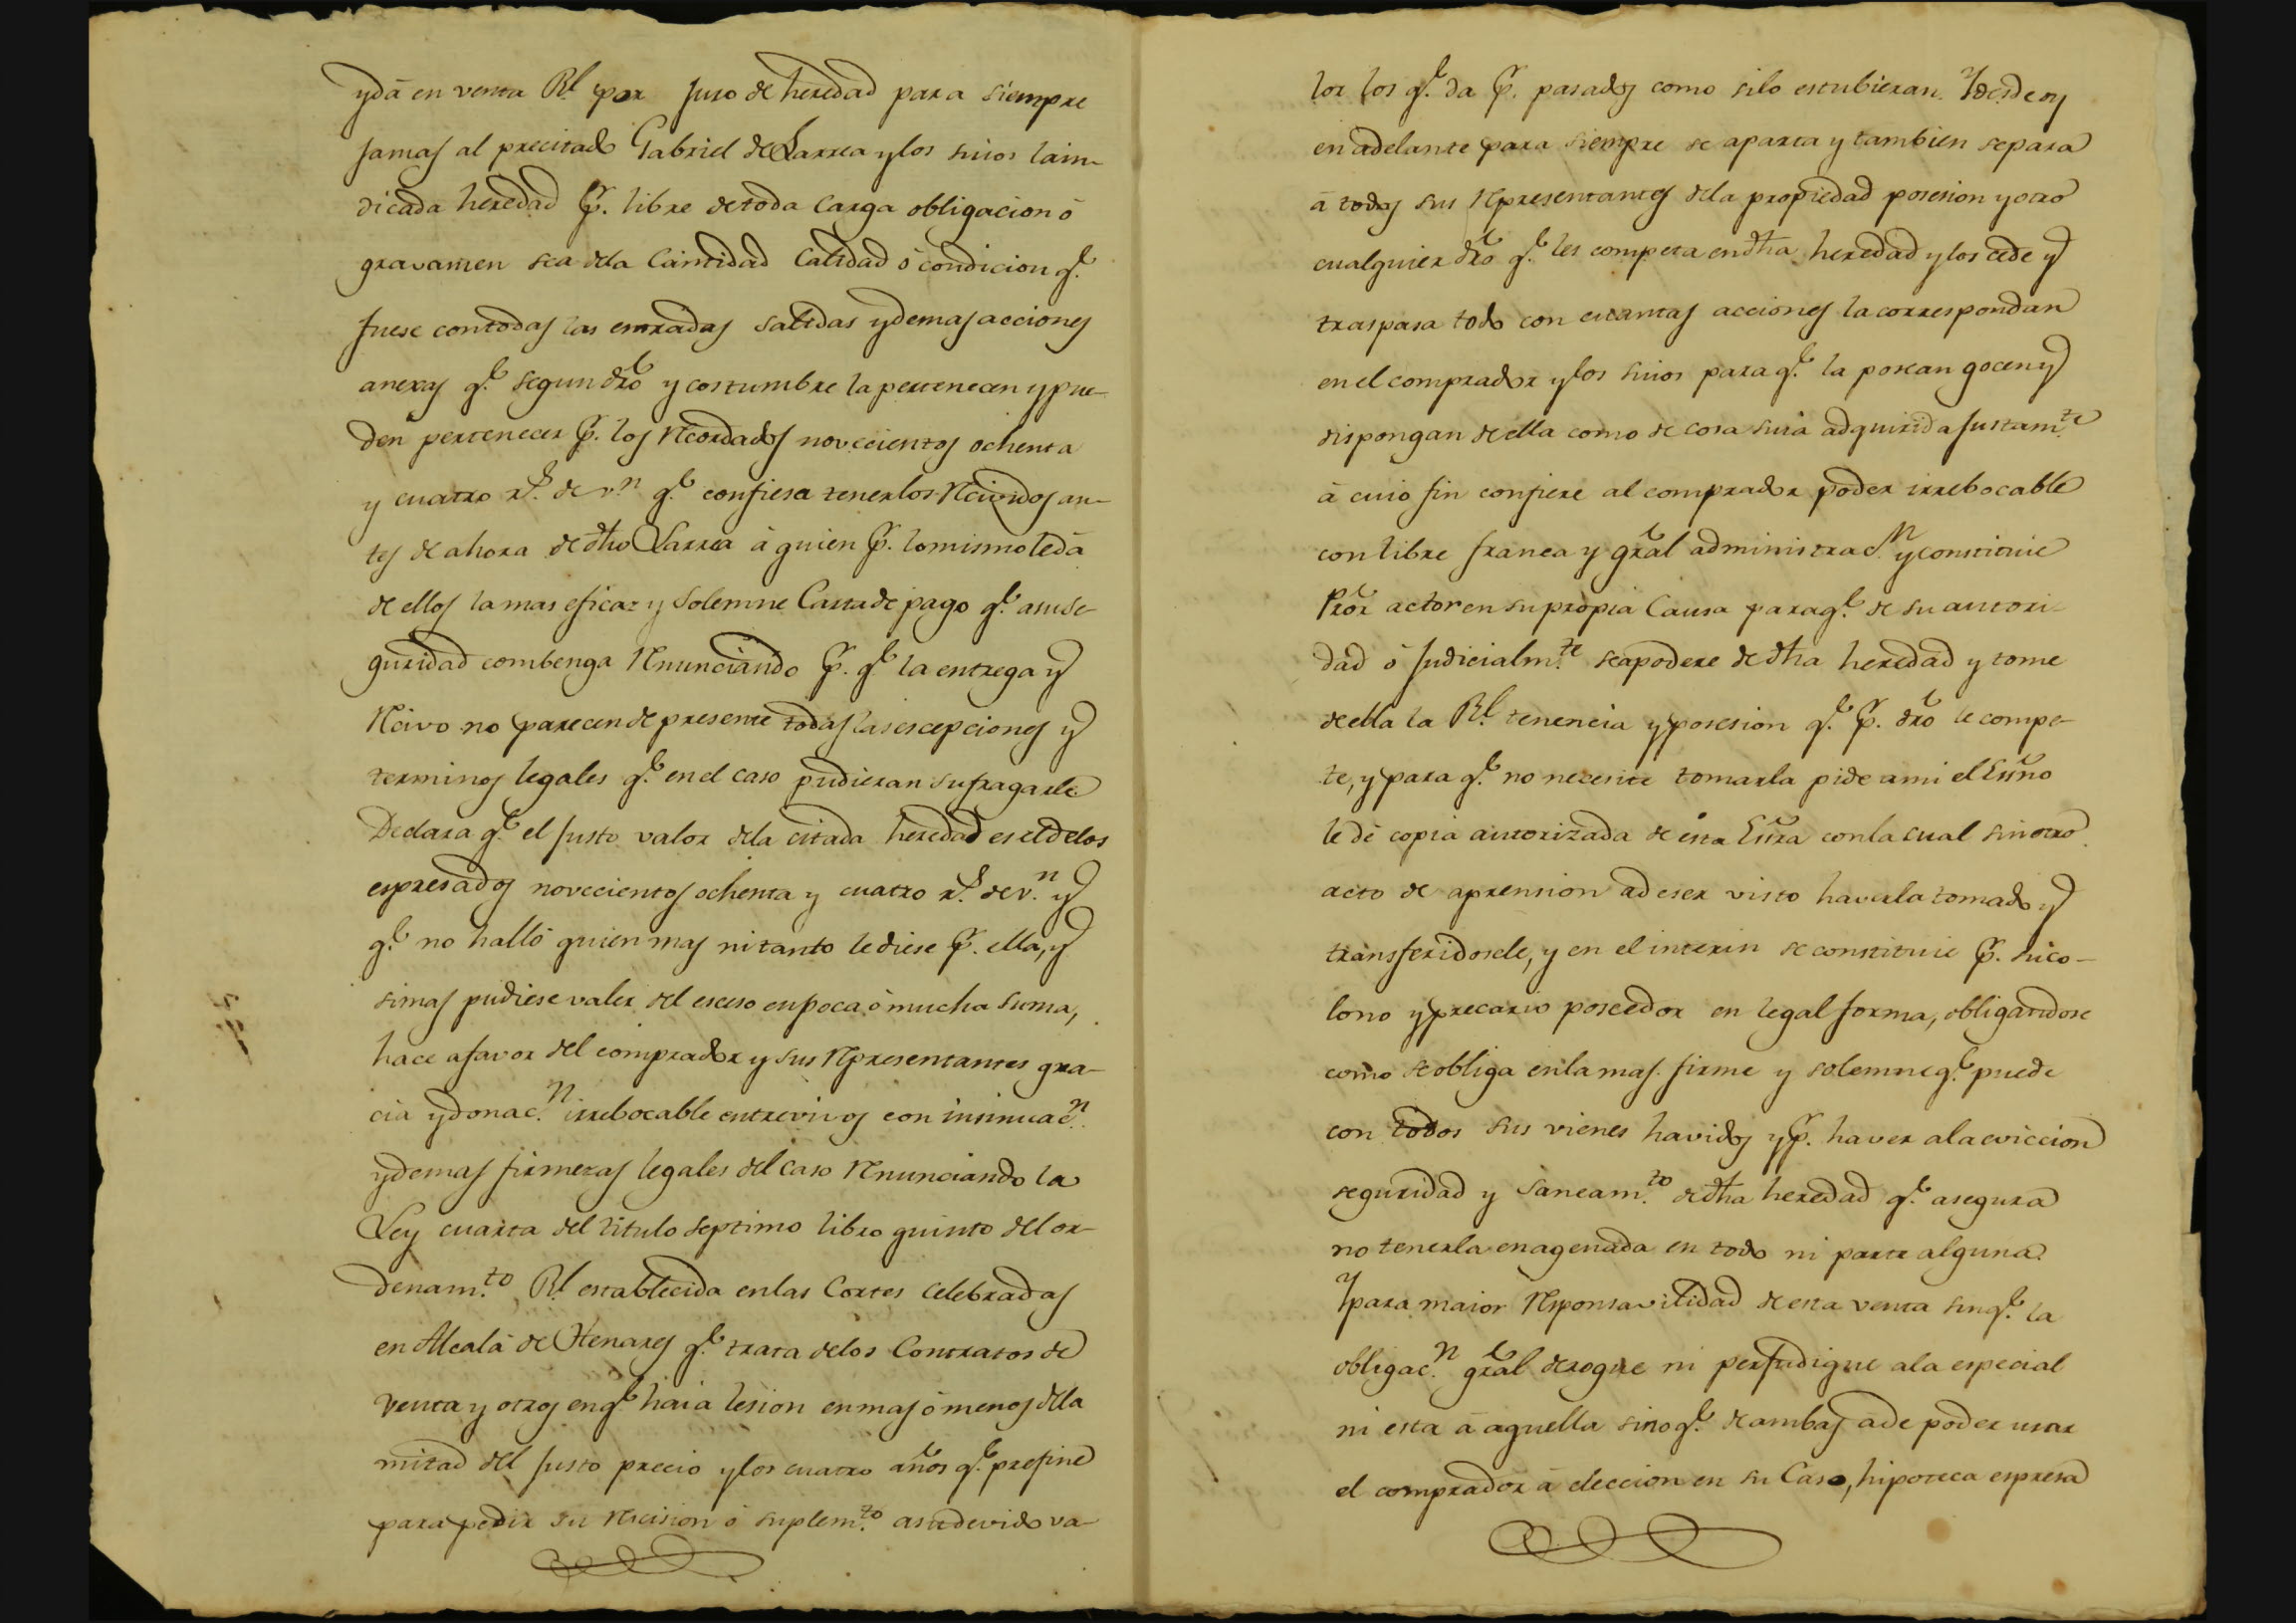 ydá en venta Rl. por Juro de heredad para siempre
Jamas al precitado Gabriel de Larrea y los suios la in-
dicada heredad p.r libre de toda Carga obligacion ó
gravamen sea dela Cantidad Calidad ó condicion q.e
fuese con todas las entradas salidas y demas acciones
anexas q.e segun dro y costumbre la pertenecen y pue-
den pertenecer p.r los Recordados novecientos ochenta
y cuatro r.s de v.n q.e confiesa tenerlos Recividos an-
tes de ahora de dho Larrea á quien p.r lo mismo le dá
de ellos la mas eficaz y Solemne Carta de pago q.e a su se-
guridad combenga Renunciando p.r q.e la entrega y
Recivo no parecen de presente todas las escepciones y
terminos legales q.e en el caso pudieran sufragarle
Declara q.e el Justo valor dela citada heredad es el delos
espresados novecientos ochenta y cuatro r.s de v.n y
q.e no halló quien mas ni tanto le diese p.r ella, y
si mas pudiese valer del esceso en poca ó mucha suma,
hace a favor del comprador y sus Representantes gra-
cia y donac.n irrebocable entre vivos con insinuac.n
y demas firmezas legales del caso Renunciando la
Ley cuarta del titulo septimo libro quinto del or-
denam.to Rl. establecida en las Cortes Celebradas
en Alcalá de Henares q.e trata delos Contratos de
Venta y otros en q.e haia lesion en mas ó menos dela
mitad del Justo precio y los cuatro años q.e prefine
para pedir su Rescision ó suplem.to a su devido va-
lor los q.e da p.r pasados como si lo estubieran. Y desde oy
en adelante para siempre se aparta y tambien separa
á todos sus Representantes dela propiedad posesion y otro
cualquier dro q.e les competa en dha heredad y los cede y
traspasa todo con cuantas acciones la correspondan
en el comprador y los suios para q.e la posean gocen y
dispongan de ella como de cosa suia adquirida Justam.te
á cuio fin confiere al comprador poder irrebocable
con libre franca y gral administrac.n y constituie
Pror actor en su propia Causa para q.e de su autori-
dad ó Judicialm.te se apodere de dha heredad y tome
de ella la Rl. tenencia y posesion q.e p.r dro le compe-
te, y para q.e no necesite tomarla pide a mi el Essno
le dé copia autorizada de esta Essra con la cual sin otro
acto de aprension ad eser visto haverla tomado y
transferidosele, y en el interin se constituie p.r su co-
lono y precario poseedor en legal forma, obligandose
como se obliga en la mas firme y solemne q.e puede
con todos sus vienes havidos y p.r haver a la eviccion
seguridad y saneam.to de dha heredad q.e asegura
no tenerla enagenada en todo ni parte alguna.
Y para maior Responsavilidad de esta venta sin q.e la
obligac.n gral derogue ni perjudique a la especial
ni esta á aquella sino q.e de ambas á de poder usar
el comprador á eleccion en su Caso, hipoteca espresa